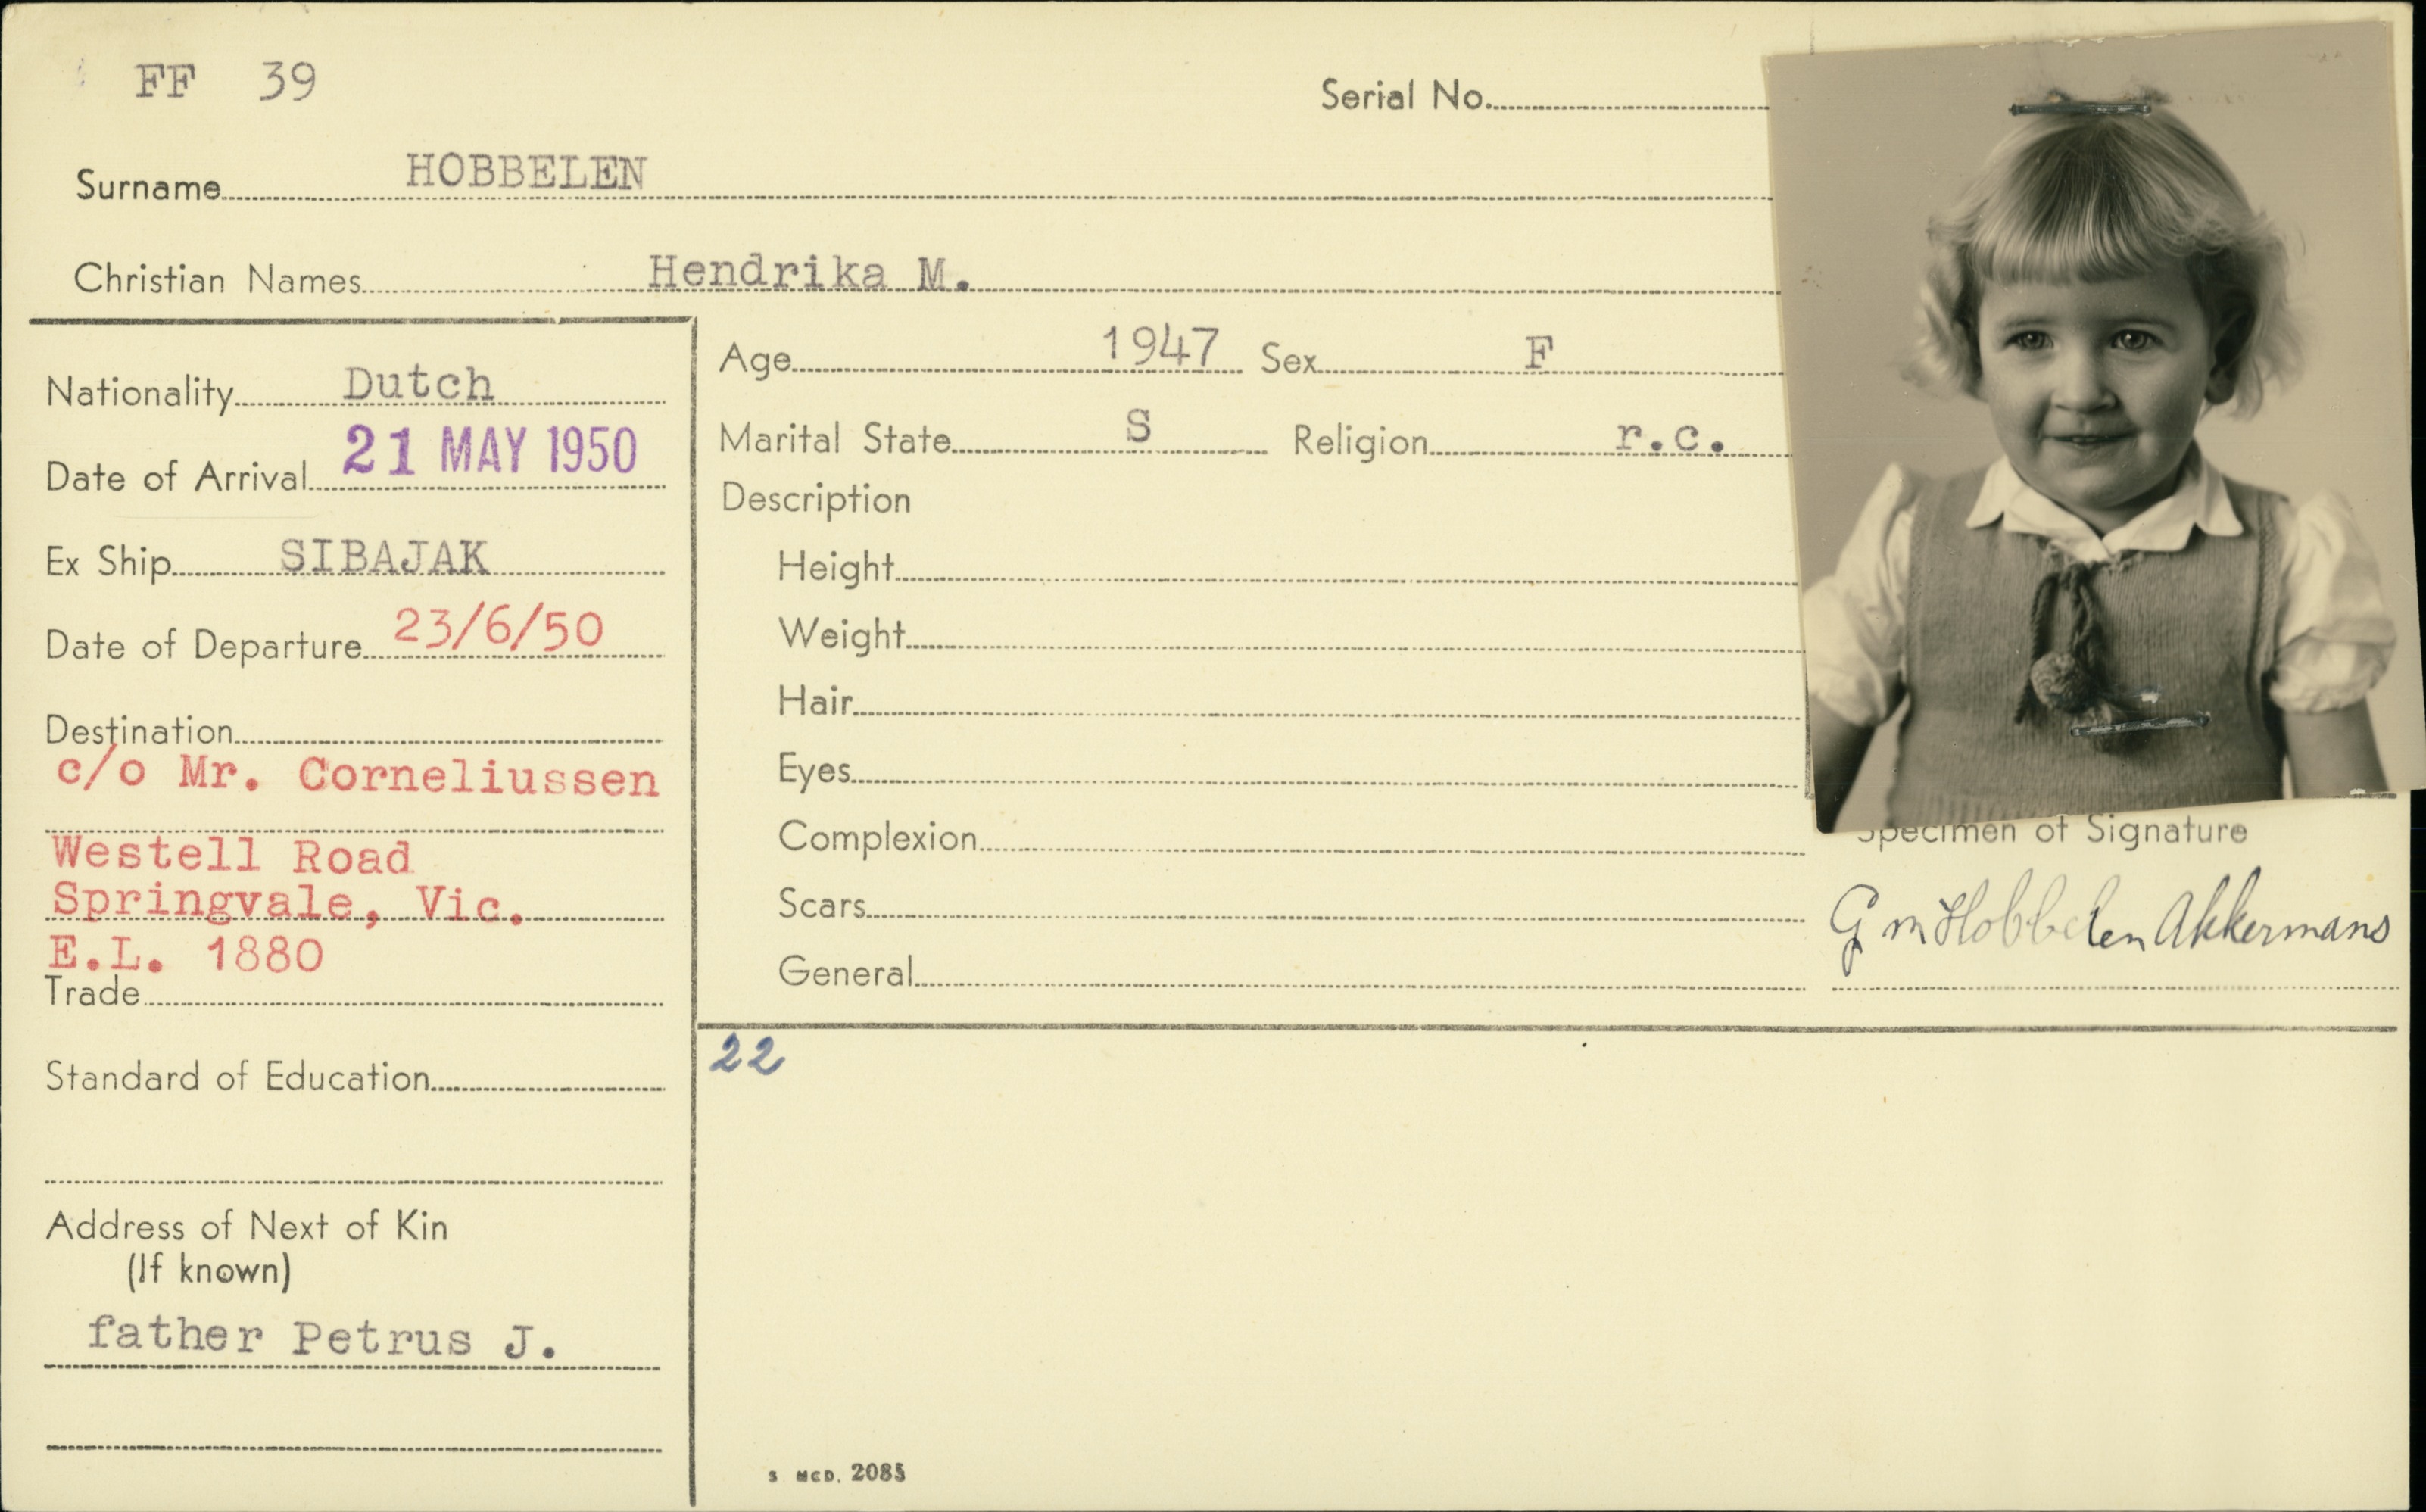 FF 39
Serial No.
Surname HOBBELEN
Christian Names Hendrika M.
Nationality Dutch
Date of Arrival 21 MAY 1950
Ex Ship SIBAJAK
Date of Departure 23/6/50
Destination
c/o Mr. Corneliussen
Westell Road
Springvale, Vic.
E.L. 1880
Trade
Standard of Education
Address of Next of Kin
(If known)
father Petrus J.
Age 1947 Sex F
Marital State S Religion r.c.
Description
Height
Weight
Hair
Eyes
Complexion
Scars
General
Specimen of Signature
G m Hobbelen Akkermans
22
S MCD. 2085